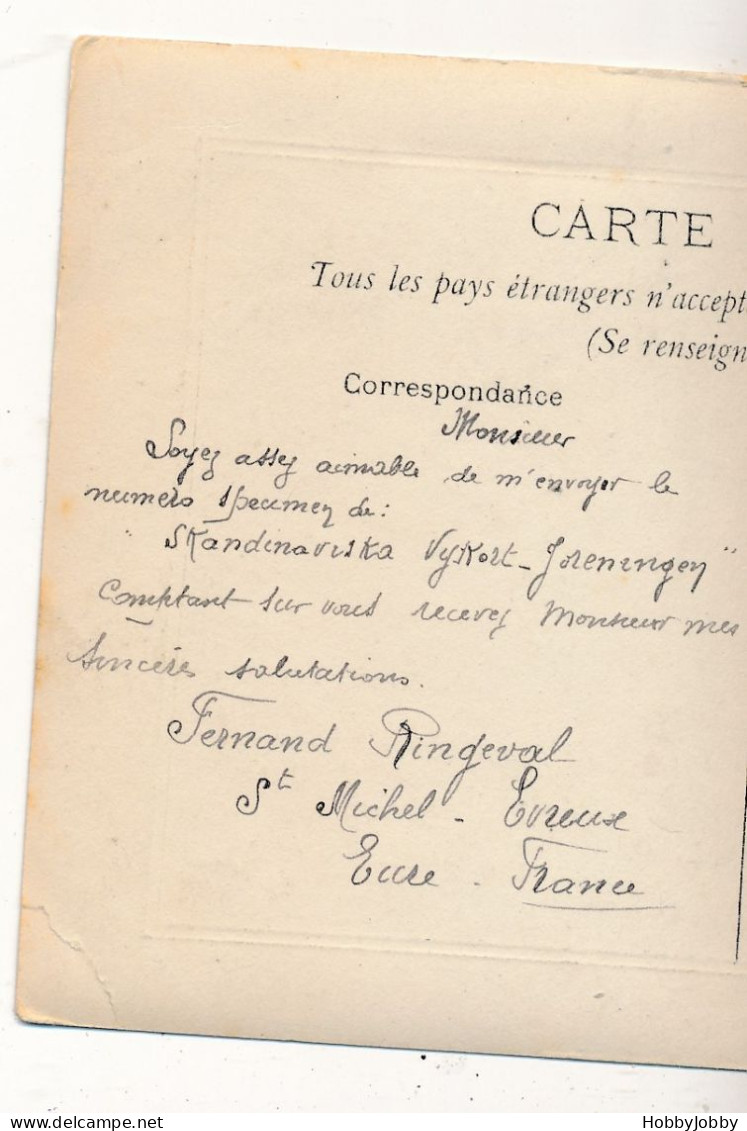 CARTE
Tous les pays étrangers n'accept
(Se renseign
Correspondance
Monsieur
Soyez assez aimable de m'envoyer le
numero specimen de:
"Skandinaviska Vykort-Foreningen"
Comptant sur vous recevez Monsieur mes
sincères salutations.
Fernand Ringeval
St Michel - Evreux
Eure - France
HobbyJobby